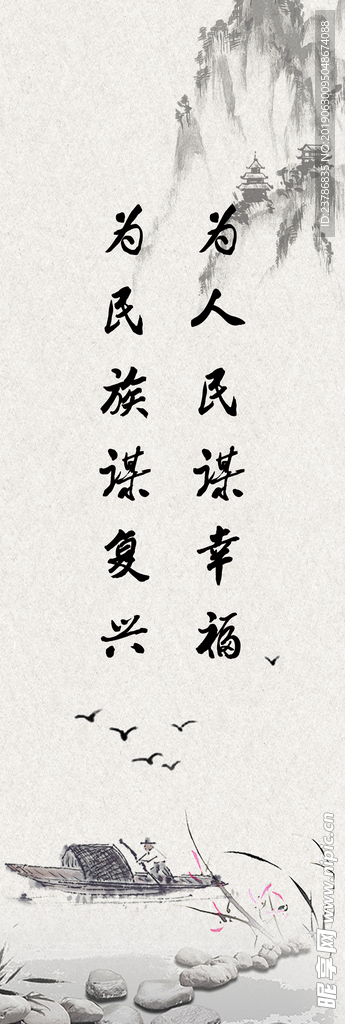 为人民谋幸福
为民族谋复兴
ID:23786835 NO:20190630095048674088
昵享网 www.nipic.cn